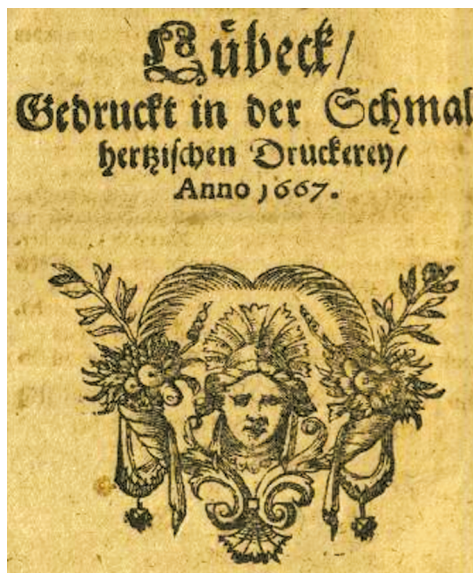 Lübeck/
Gedruckt in der Schmal
hertzischen Druckerey/
Anno 1667.